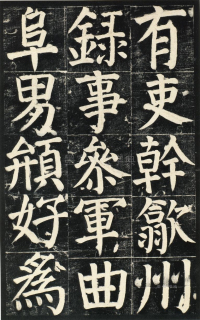 有吏幹歙州
録事叅軍曲
阜男頩好爲